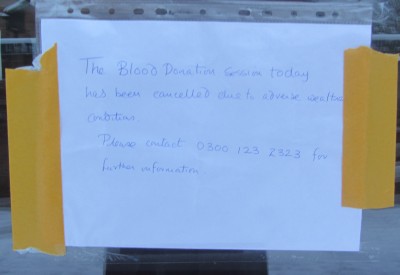 The Blood Donation Session today
has been cancelled due to adverse weather
conditions
Please contact 0300 123 2323 for
further information